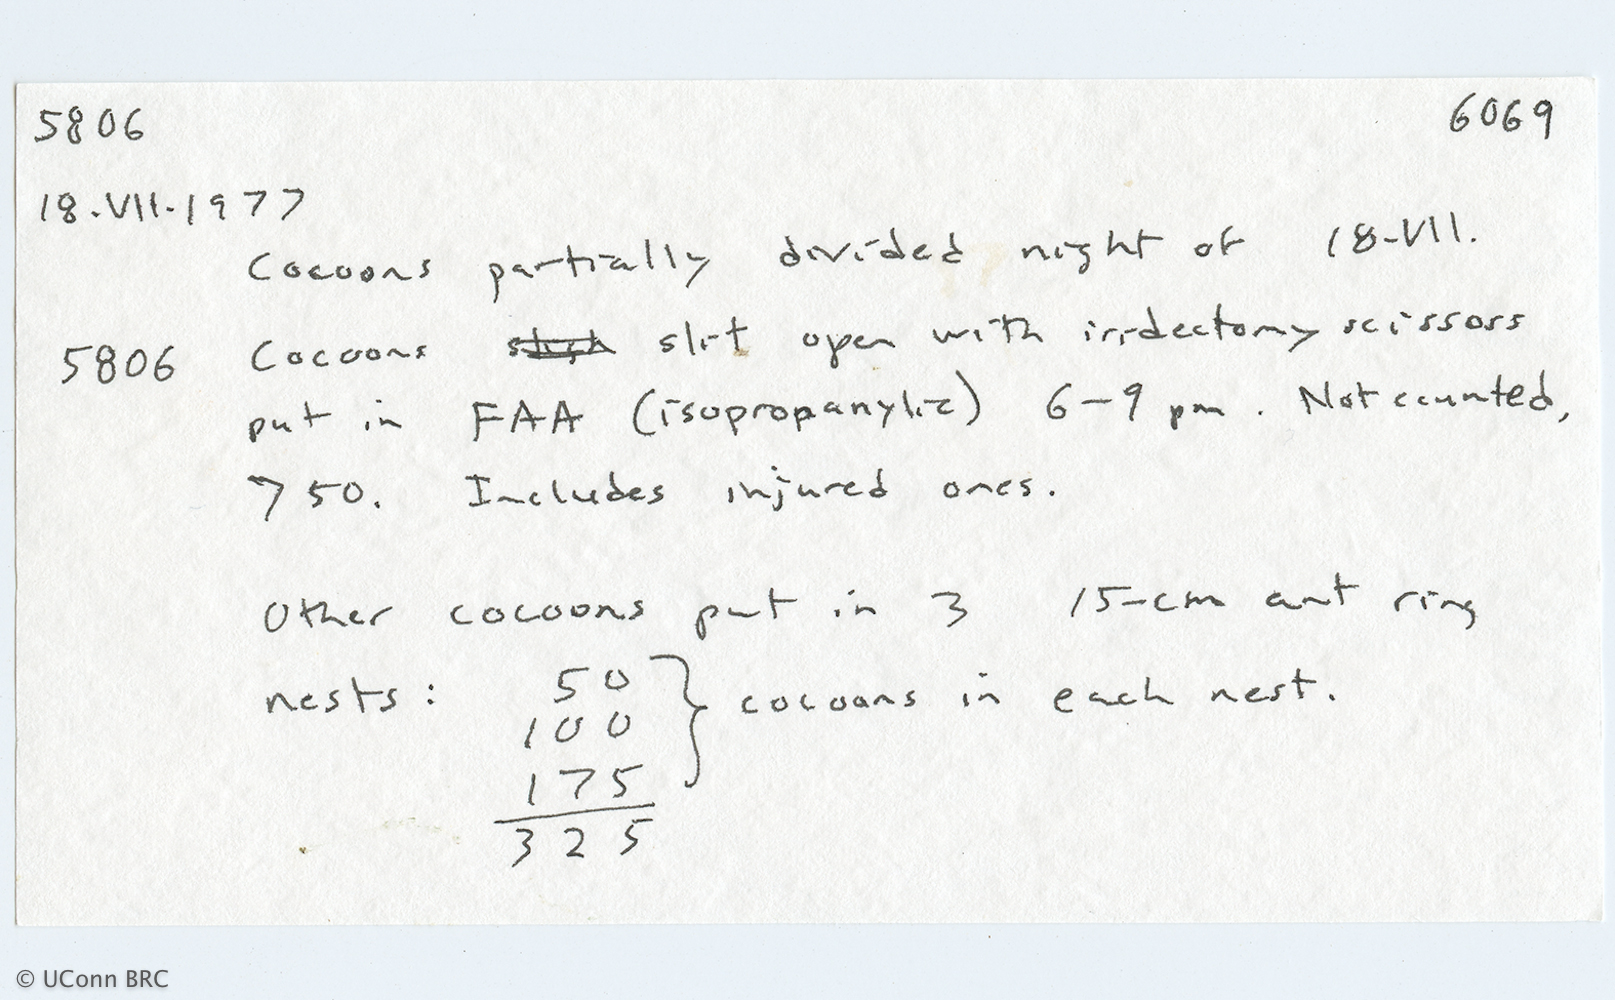 5806 6069
18.VII.1977
Cocoons partially divided night of 18-VII.
5806 Cocoons slit open with iridectomy scissors
put in FAA (isopropanylic) 6-9 pm. Not counted,
750. Includes injured ones.
Other cocoons put in 3 15-cm ant ring
nests: 50 } cocoons in each nest.
100
175
325
© UConn BRC